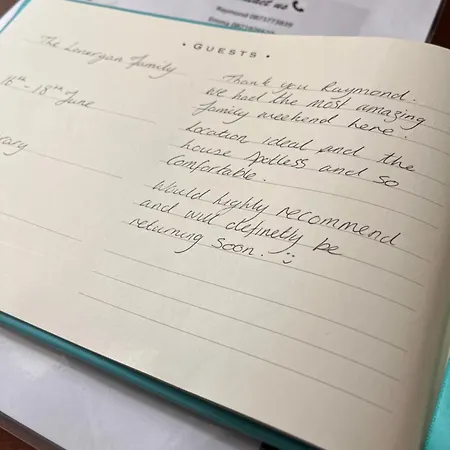 • GUESTS •
The Lonergan Family
16th - 18th June
Thank you Raymond.
We had the most amazing
family weekend here.
Location ideal and the
house spotless and so
comfortable.
Would highly recommend
and will definetly be
returning soon. :)
contact us
Raymond